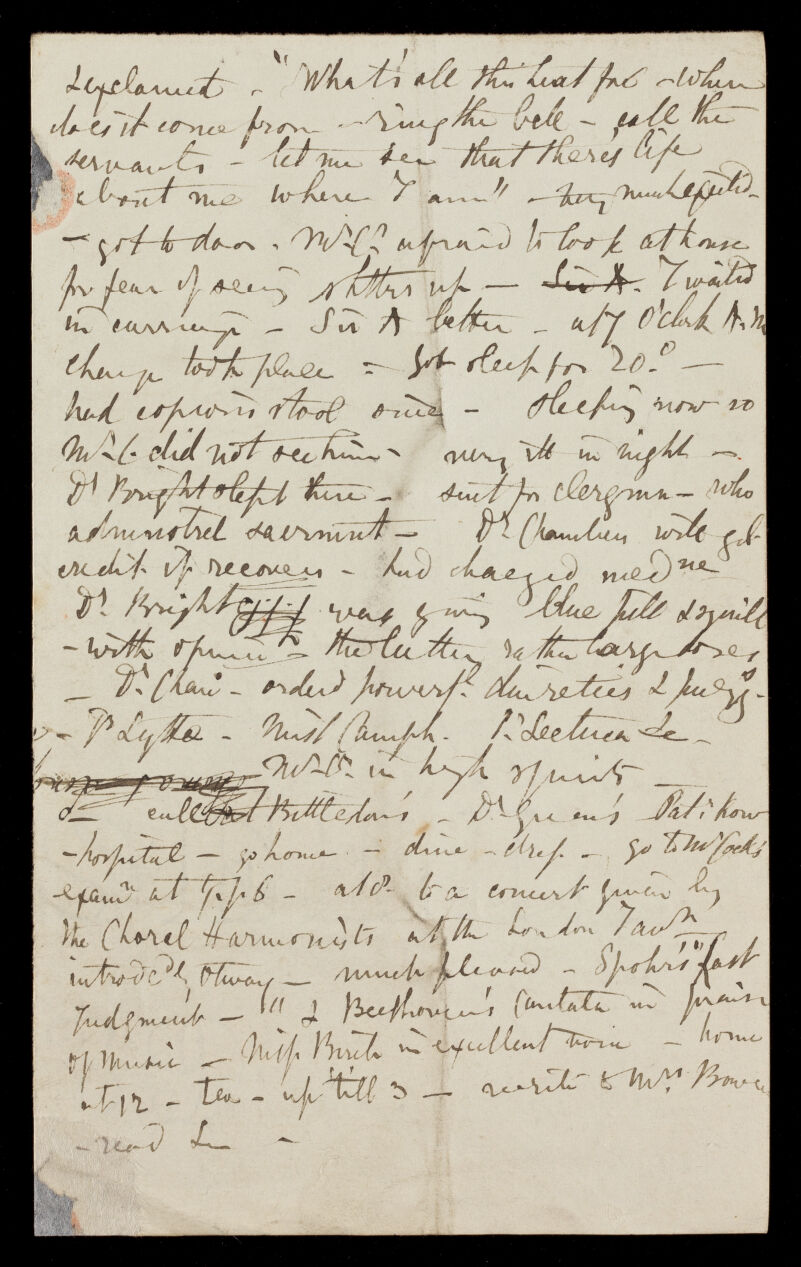 & exclaimed - "What's all this heat for - where
does it come from - ring the bell - call the
servants - let me see that there's life
about me where I am" - very much excited -
- got to door. Mr. C. afraid to look at house
for fear of seeing shutters up - Sir A. I waited
in carriage - Sir A better - at 7 O'clock A.M
change took place - got sleep for 20.
had copious stool since - sleeping now so
Mr. C. did not see him - very ill in night -
Dr Bright slept there - sent for clergman - who
administred sacrment - Dr. Chambers will get
credit if recovers - had changed medne
Dr. Bright was giving blue pill & squill
- with opium - the latter rather large doses
- Dr. Cham - orderd powerfl. diuretics & purgs -
P. Lyttae - Mist Camph. &c -
Mr. C. in high spirits -
call Bittledon's - Dr. Green's
- hospital - go home - dine - dress - go to Mr Cock's
examn at 1/2 p 6 - at 8 to a concert given by
the Choral Harmonists at the London Tavn
introdcd by Otway - much pleased - Spohr's "Last
Judgment - " & Beethoven's Cantata in praise
of Music - Miss Birch in excellent voice - home
at 12 - tea - up 'till 3 - write to Mrs. Bowen
- read &c -